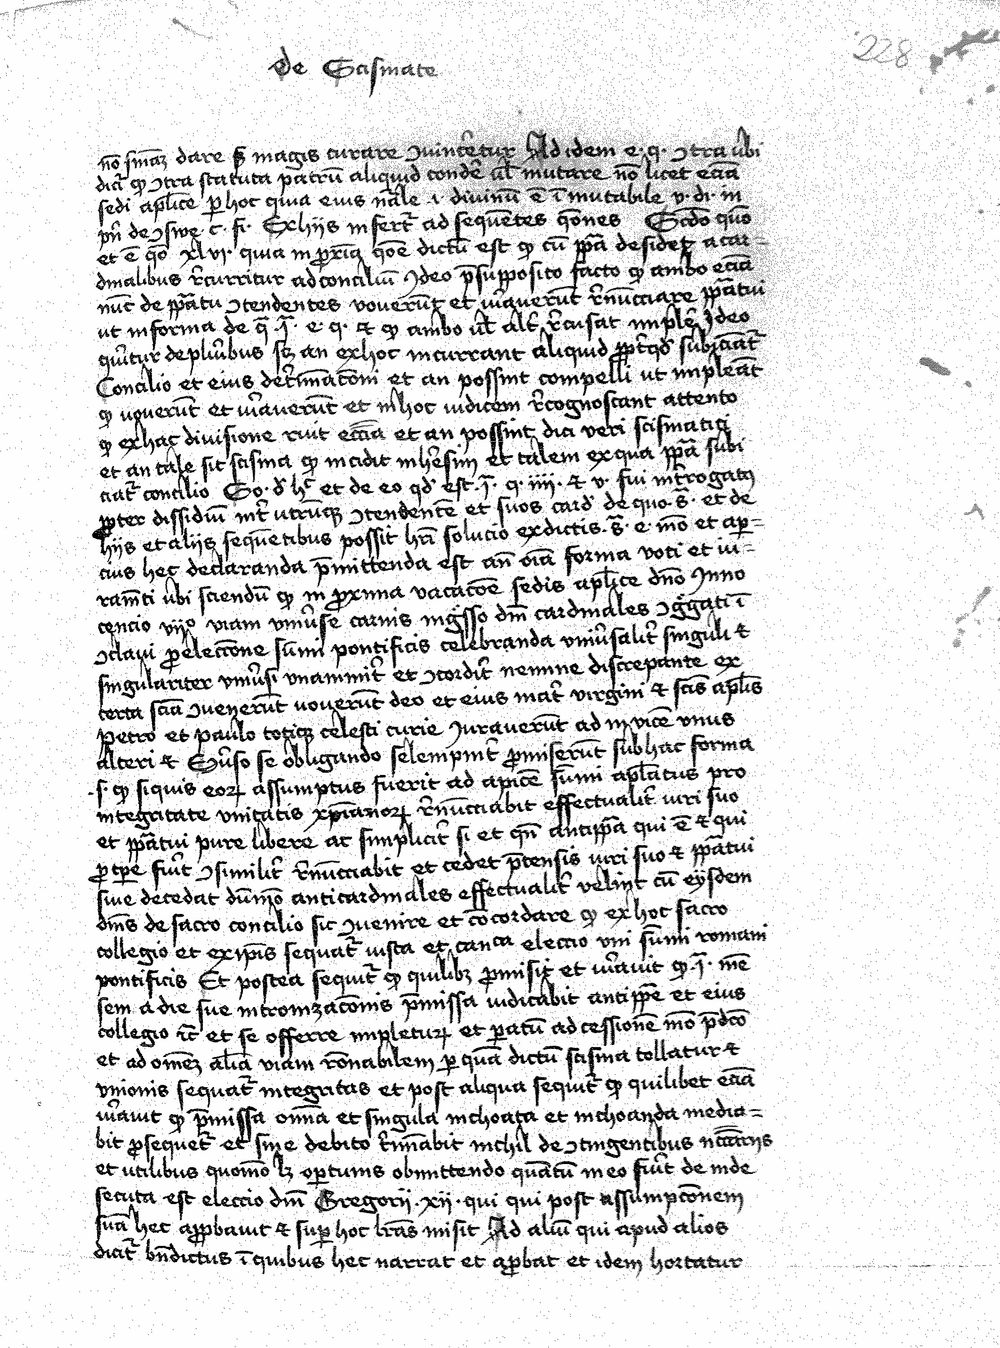 De Scismate
228
nō smaꝫ dare sꝫ magis curare ꝯuinc̄etur Ad idem e· q· ꝯtra ubi
dicit̄ ꝙ ꝯtra statuta patrū aliquid conde᷒ ul̄ mutare nō licet ecia̅
sedi apl̄ice ꝑ hoc quia eius nāle · i· diuinū ē īmutabile v· di· in
pn̄ de ꝯ c· fi· Ex hijs infert̄ ad sequētes q̄ones Scdo quo
et ē q̄o xlvi· quia in ꝓxīa q̄oe dictū est ꝙ cū ppā desidet̄ a car=
dinalibus r̄curritur ad conciliū Ideo p̄supposito facto ꝙ ambo ecia̅
nūc de ppātu ꝯtendentes vouerūt et iur̄auerūt r̄nūcciare ppātui
ut in forma de q̄ ·j̄· e· q· ⁊ ꝙ ambo ul̄ alt̄ r̄cusat implē Ideo
quīr̄tur de pluribus sꝫ an ex hoc incurrant aliquid ꝓpt̄ qd̄ subiciāt̄
Concilio et eius det̄minac̄oni et an possint compelli ut impleāt
ꝙ vouerūt et iur̄auerūt et in hoc iudicem r̄cognoscant attento
ꝙ ex hac diuisione ruit eccīa et an possint dici veri scismatici
et an tale sit scisma ꝙ incidit in h̄esim et talem ex qua ppā subi
ciat̄ concilio So· d̄ h̄c et de eo qd̄ est ·j̄· q· iiij· ⁊ v· fui int̄rogatꝰ
ꝓpter dissidiū int̄ utrūqꝫ ꝯtendentē et suos card̄ de quo· s̄· et de
hijs et alijs sequētibus possit hr̄i solucio ex dictis· s̄· e· mo et aꝑ=
cius hec declaranda p̄mittenda est an̄ oīa forma voti et iu=
ram̄ti ubi sciendū ꝙ in ꝓxima vacacōe sedis apl̄ice dn̄o Inno
cencio vijo viam vniu̅se carnis ing̅sso dn̄i cardinales ꝯg̅gati ī
ꝯclaui ꝓ eleccōne sūmi pontificis celebranda vniu̅salit̄ singuli ⁊
singulariter vniu̅si vnanimit̄ et ꝯcordit̄ nemine discrepante ex
certa scīa ꝯuenerūt vouerūt deo et eius matri virgini ⁊ scīs apl̄is
petro et paulo totiqꝫ celesti curie Iurauerūt ad inuicē vnus
alteri ⁊ se obligando solempnit̄ ꝓmiserūt sub hac forma
·s· ꝙ si quis eoꝝ assumptus fuerit ad apicē sūmi apl̄atus pro
integritate vnitatis xp̄ianoꝝ r̄nūcciabit effectualit̄ iuri suo
et ppātui pure libere ac simplicit̄ si et qn̄ antippā qui ē ⁊ qui
ꝓ tp̄e fuīt ꝯsimilit̄ r̄nūcciabit et cedet p̄tensis iuri suo ⁊ ppātui
siue decedat dū̄mō anticardinales effectualit̄ velint cū eijsdem
dn̄is de sacro concilio sic ꝯuenire et cōcordare ꝙ ex hoc sacro
collegio et ex ip̄is sequat̄ iusta et canca eleccio vni sūmi romani
pontificis Et postea sequit̄ ꝙ quilibꝫ ꝓmisit et iur̄auit ꝙ ·j̄· mē
sem a die sue intronizac̄onis p̄missa iudicabit antippe et eius
collegio ic̄ et se offerre impleturꝝ et paratū ad cessionē mō p̄dc̄o
et ad omēꝫ alīa viam rōnabilem ꝑ quā dictū scisma tollatur ⁊
vnionis sequat̄ integritas et post aliqua sequit̄ ꝙ quilibet ecia̅
iur̄auit ꝙ p̄missa om̄ia et singula inchoata et inchoanda media=
bit ꝓsequet̄ et sine debito t̄minabit nichil de ꝯtingentibus ncc̄ar̄ijs
et utilibus quomōlꝫ optunis obmittendo quātū in eo fuīt de inde
secuta est eleccio dn̄i Gregorij· xij· qui qui post assumpc̄onem
suā hec aꝓpbauit ⁊ suꝑ hoc l̄ras misit Ad aliū qui apud alios
dicit̄ bn̄dictus ī quibus hec narrat et aꝓbat et idem hortatur